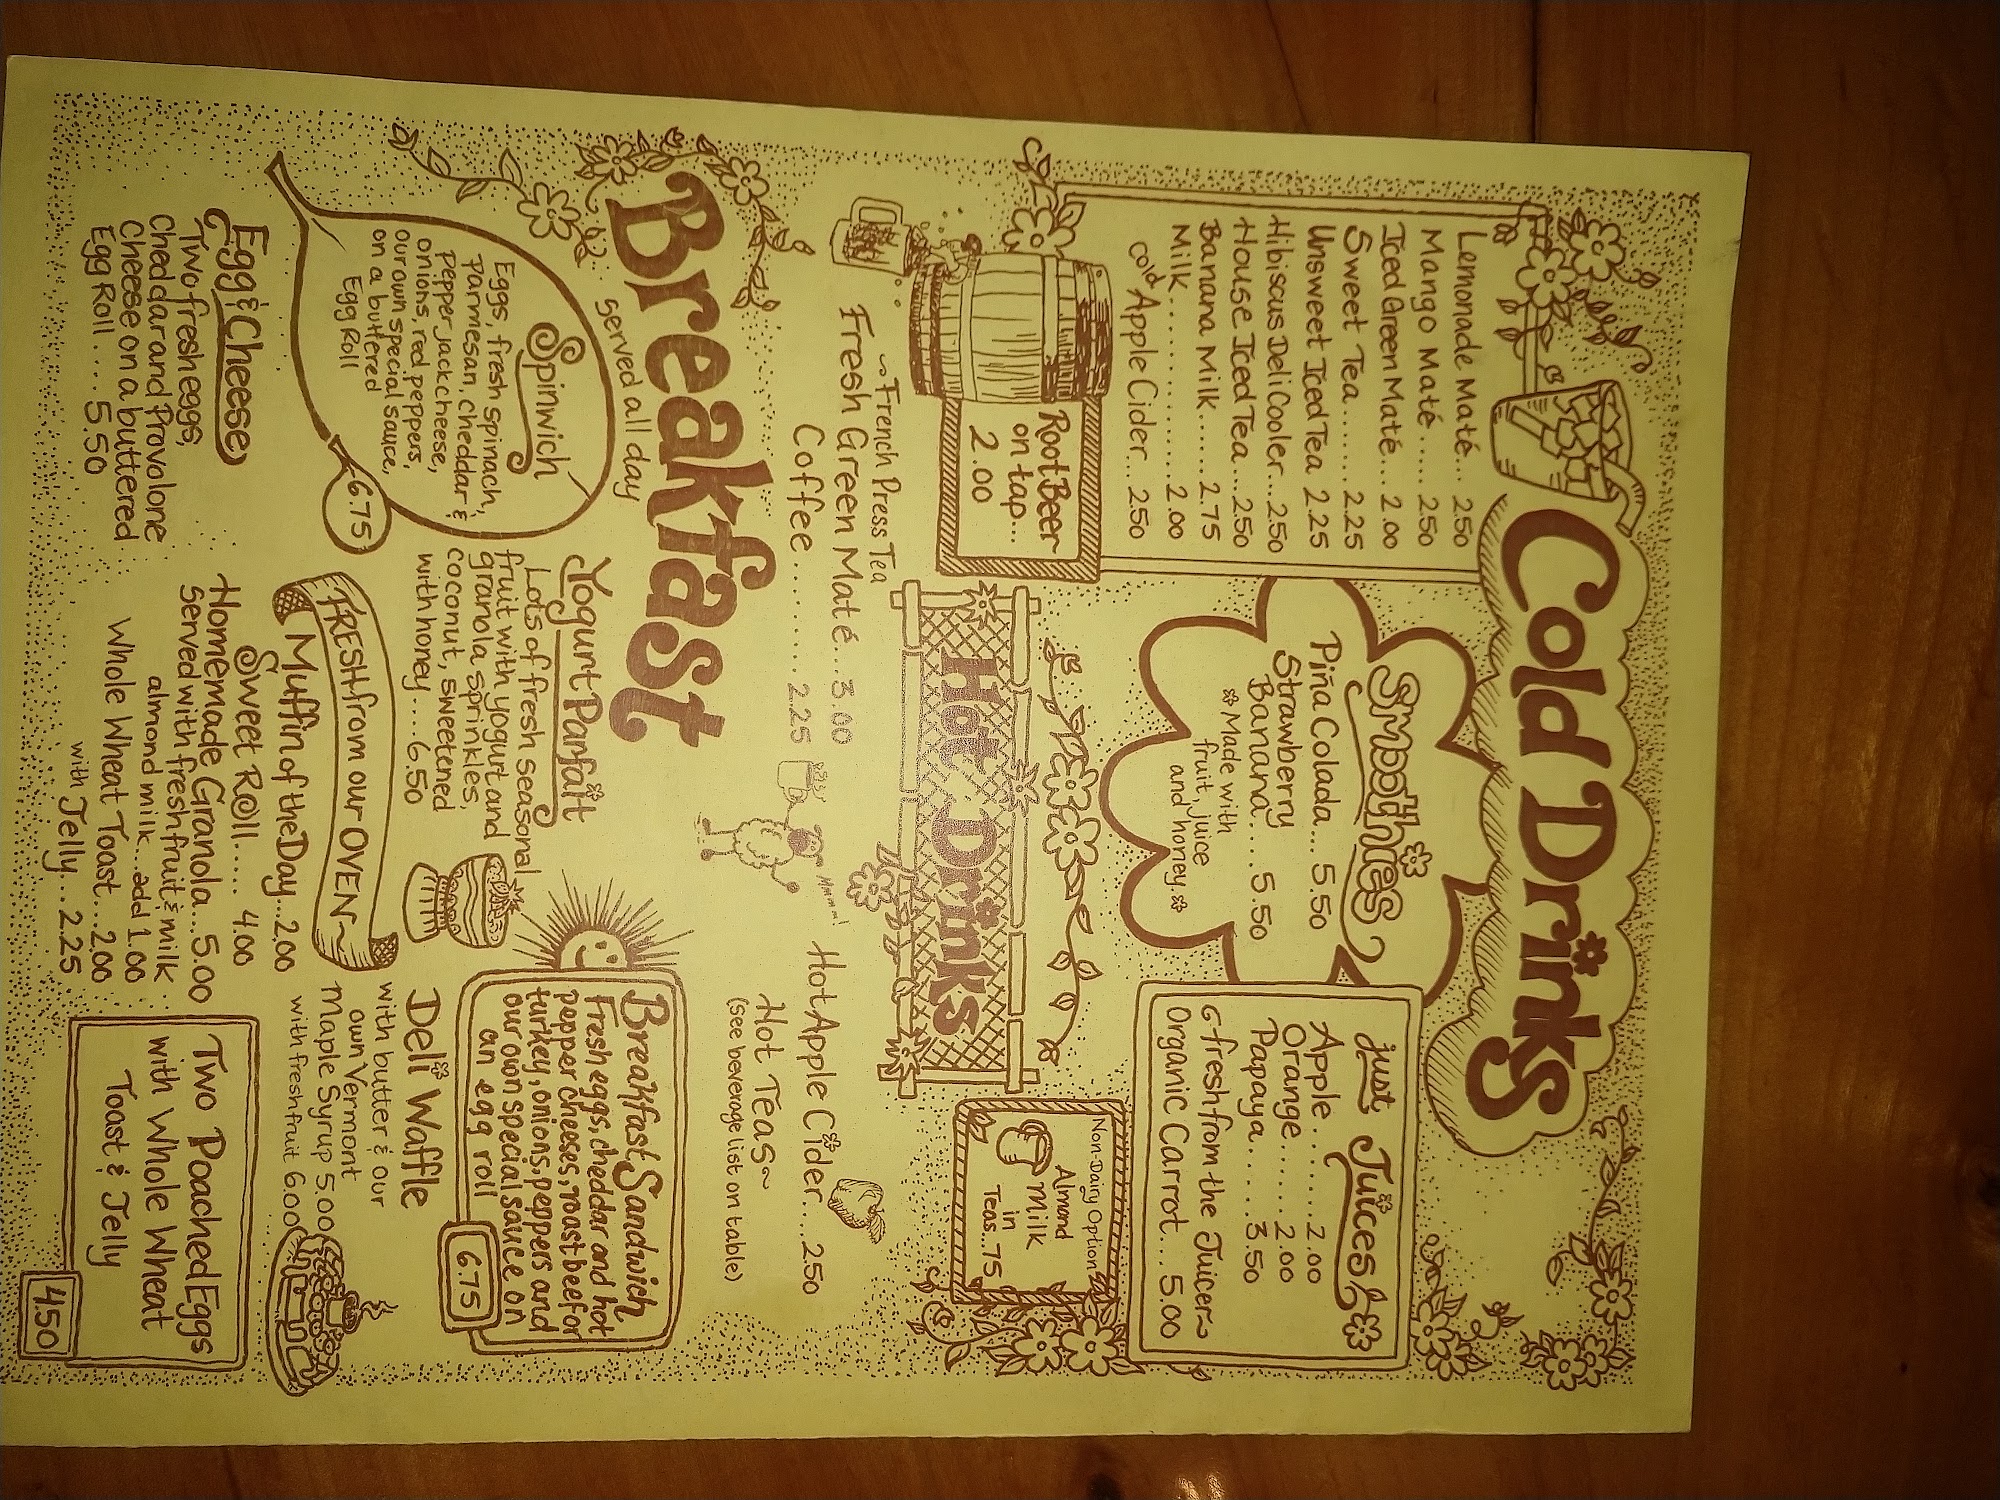 Cold Drinks
Lemonade Maté... 2.50
Mango Maté .... 2.50
Iced Green Maté... 2.00
Sweet Tea...... 2.25
Unsweet Iced Tea 2.25
Hibiscus Deli Cooler... 2.50
House Iced Tea... 2.50
Banana Milk..... 2.75
Milk............ 2.00
cold Apple Cider... 2.50
Root Beer
on tap...
2.00
Smoothies
Piña Colada... 5.50
Strawberry
Banana... 5.50
Made with
fruit, juice
and honey.
just Juices
Apple....... 2.00
Orange...... 2.00
Papaya..... 3.50
~fresh from the Juicer~
Organic Carrot... 5.00
Hot Drinks
~French Press Tea
Fresh Green Maté...3.00
Coffee......... 2.25
Mmm!
Non-Dairy Option
Almond
Milk
in
Teas...75
Hot Apple Cider....2.50
Hot Teas~
(see beverage list on table)
Breakfast
served all day
Spinwich
Eggs, fresh spinach,
parmesan, cheddar &
pepper jack cheese,
onions, red peppers,
our own special sauce,
on a buttered
Egg Roll
6.75
Egg & Cheese
Two fresh eggs,
Cheddar and Provolone
Cheese on a buttered
Egg Roll .... 5.50
Yogurt Parfait
Lots of fresh seasonal
fruit with yogurt and
granola sprinkles,
coconut, sweetened
with honey.....6.50
FRESH from our OVEN~
Muffin of the Day...2.00
Sweet Roll..... 4.00
Homemade Granola...5.00
served with fresh fruit & milk
almond milk....add 1.00
Whole Wheat Toast...2.00
with Jelly...2.25
Breakfast Sandwich
Fresh eggs, cheddar and hot
pepper cheeses, roast beef or
turkey, onions, peppers and
our own special sauce on
an egg roll
6.75
Deli Waffle
with butter & our
own Vermont
Maple Syrup 5.00
with fresh fruit 6.00
Two Poached Eggs
with Whole Wheat
Toast & Jelly
4.50